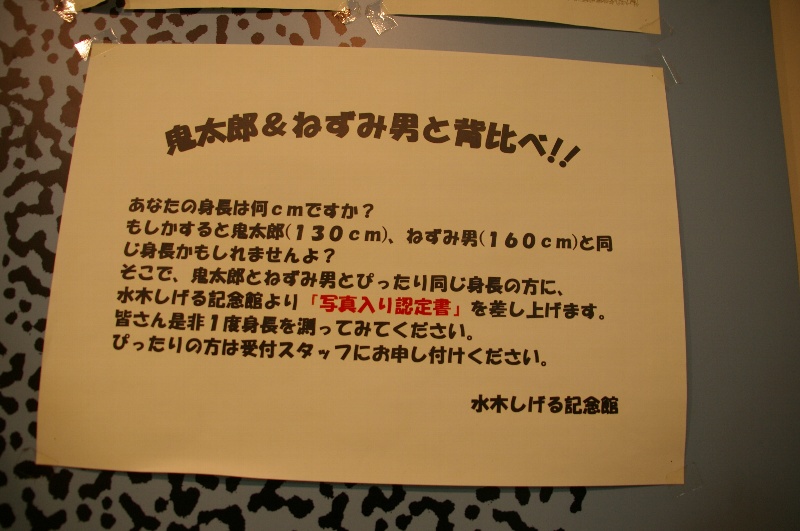 鬼太郎＆ねずみ男と背比べ!!
あなたの身長は何ｃｍですか？
もしかすると鬼太郎(１３０ｃｍ)、ねずみ男(１６０ｃｍ)と同
じ身長かもしれませんよ？
そこで、鬼太郎とねずみ男とぴったり同じ身長の方に、
水木しげる記念館より「写真入り認定書」を差し上げます。
皆さん是非１度身長を測ってみてください。
ぴったりの方は受付スタッフにお申し付けください。
水木しげる記念館